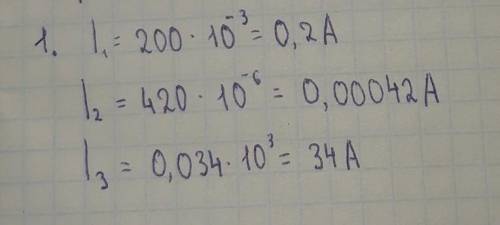 1. I₁ = 200 · 10⁻³ = 0,2 A
I₂ = 420 · 10⁻⁶ = 0,00042 A
I₃ = 0,034 · 10³ = 34 A